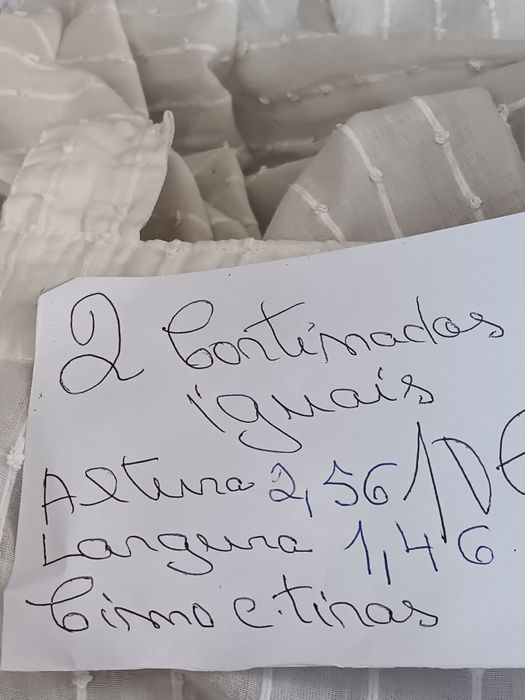 2 Cortinados
iguais
Altura 2,56
Largura 1,46
Cimo c. tiras